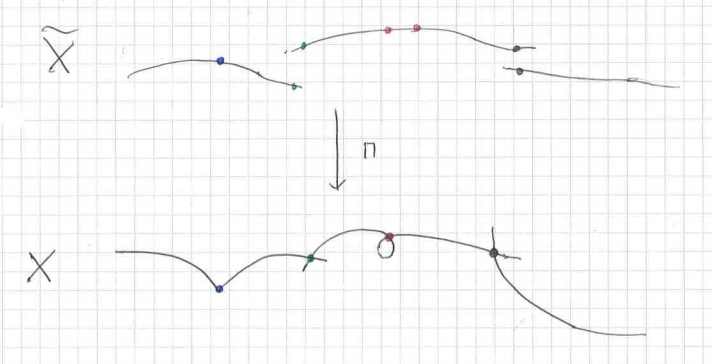 X̃
π
X